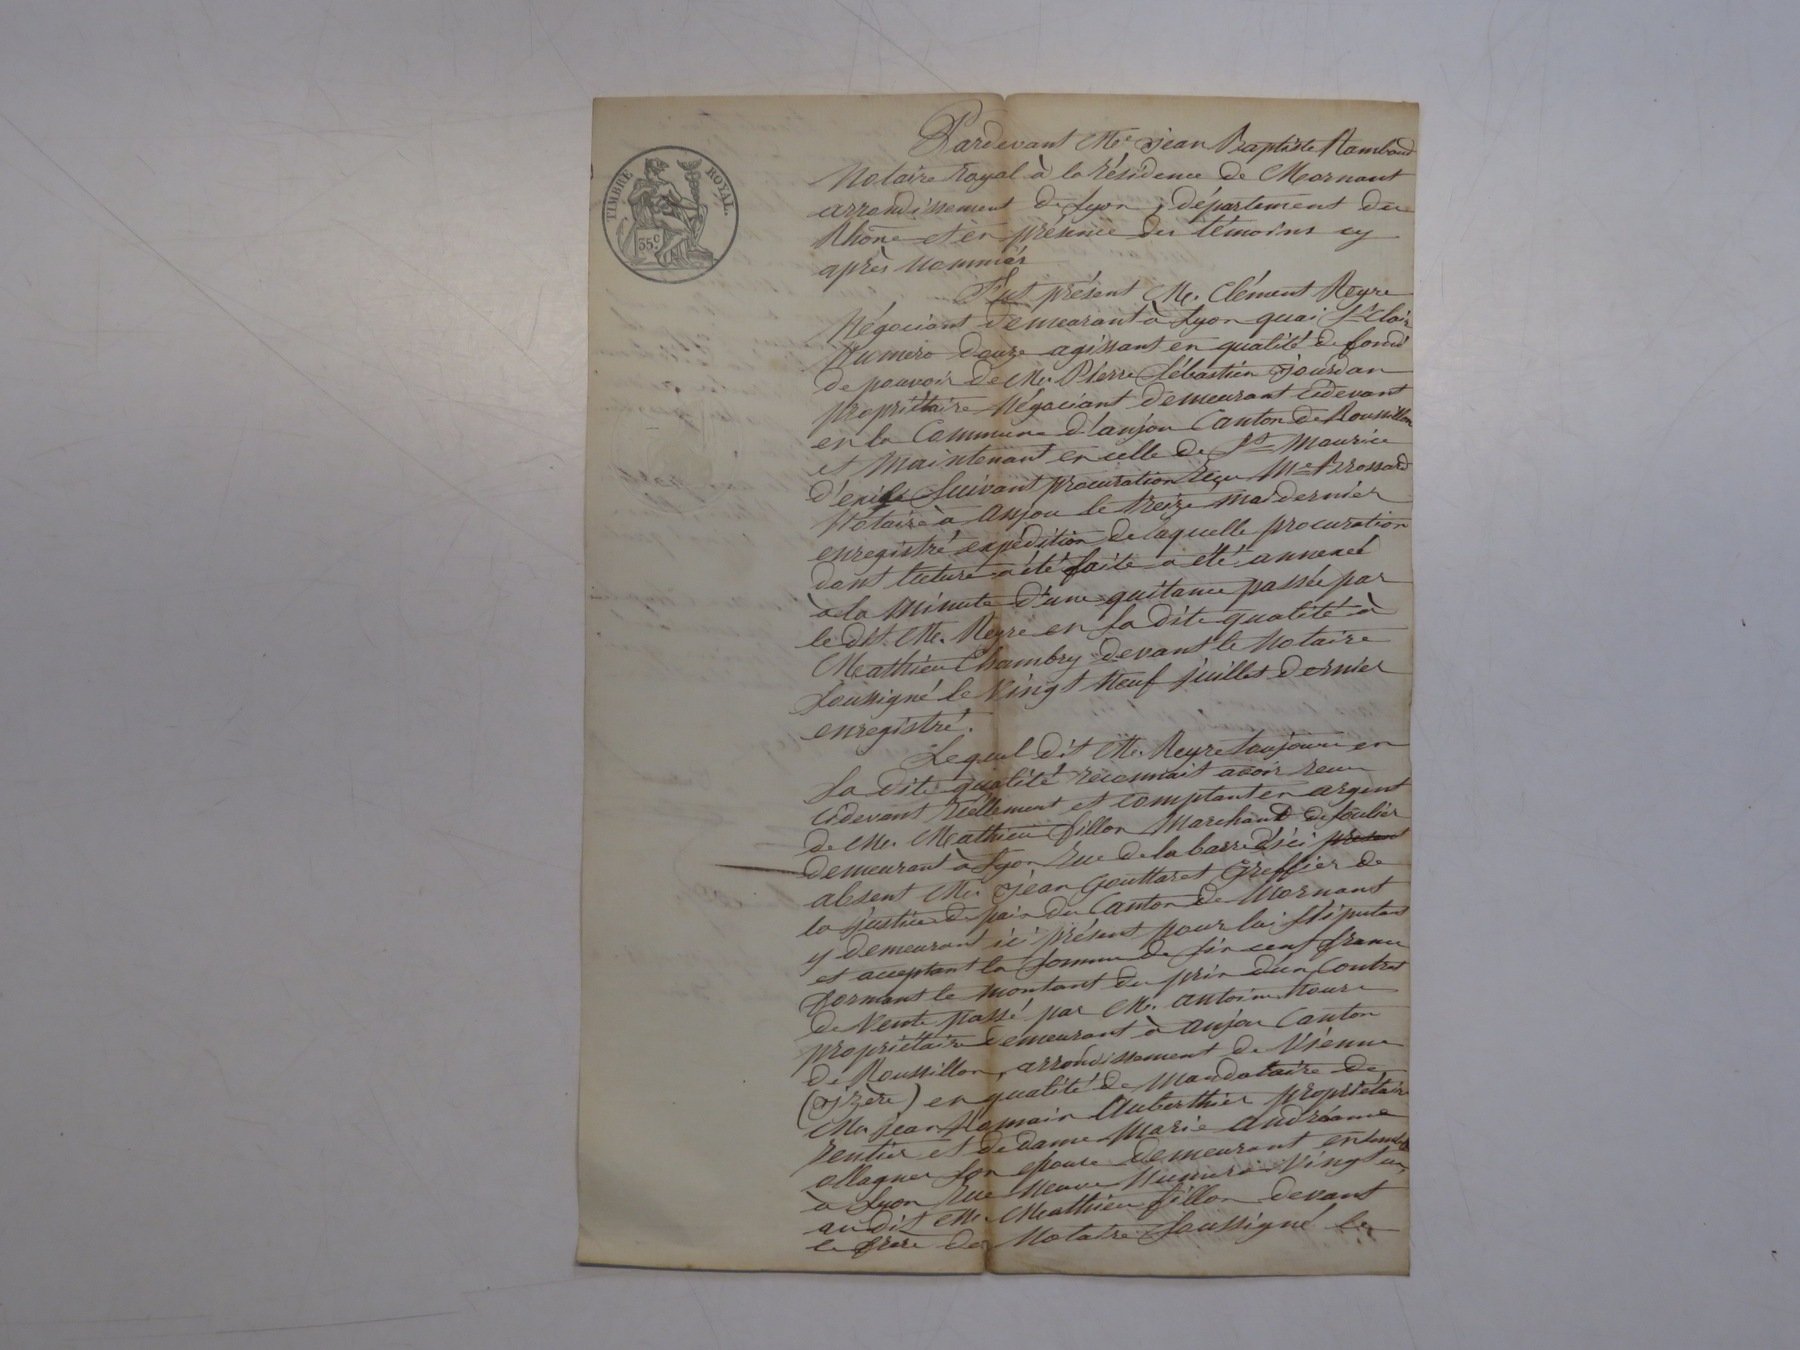 TIMBRE ROYAL.
35 c
Pardevant Me jean Baptiste Rambaud
Notaire royal à la résidence de Mornant
arrondissement de Lyon, département du
Rhône et en présence des témoins cy
après nommés
Fut présent Mr. Clément Reyre
Négociant demeurant à Lyon quai St Clair
Numero douze agissant en qualité de fondé
de pouvoir de Mr. Pierre Sébastien jourdan
propriétaire Négociant demeurant cidevant
en la Commune d'anjou Canton de Roussillon
et maintenant en celle de St Maurice
d'exile suivant procuration reçu Me Brossard
Notaire à Anjou le treize mars dernier
enregistré expédition de laquelle procuration
dont lecture a été faite a été annexé
à la minute d'une quitance passée par
le dit Mr. Reyre en sa dite qualité à
Mathieu Chambry devant le Notaire
soussigné le Vingt Neuf juillet dernier
enregistré.
Lequel dit Mr. Reyre toujours en
sa dite qualité reconnait avoir reçu
cidevant réellement et comptant en argent
de Mr. Mathieu fillon Marchand de soulier
demeurant à Lyon rue de la barre d'ici present
absent Mr. jean Gouttaret Greffier de
la justice de paix du Canton de Mornant
y demeurant ici présent pour lui stipulant
et acceptant la somme de six cent francs
formant le montant du prix d'un Contrat
de Vente passé par Mr. antoine Roure
propriétaire demeurant à anjou Canton
de Roussillon, arrondissement de Vienne
(jzère) en qualité de Mandataire de
Mr jean Romain Auberthier propriétaire
rentier et de dame Marie andréanne
ollagner son epouse demeurant ensemble
à Lyon rue Neuve Numéro Vingt un
au dit Mr. Mathieu fillon devant
le frère du Notaire soussigné le